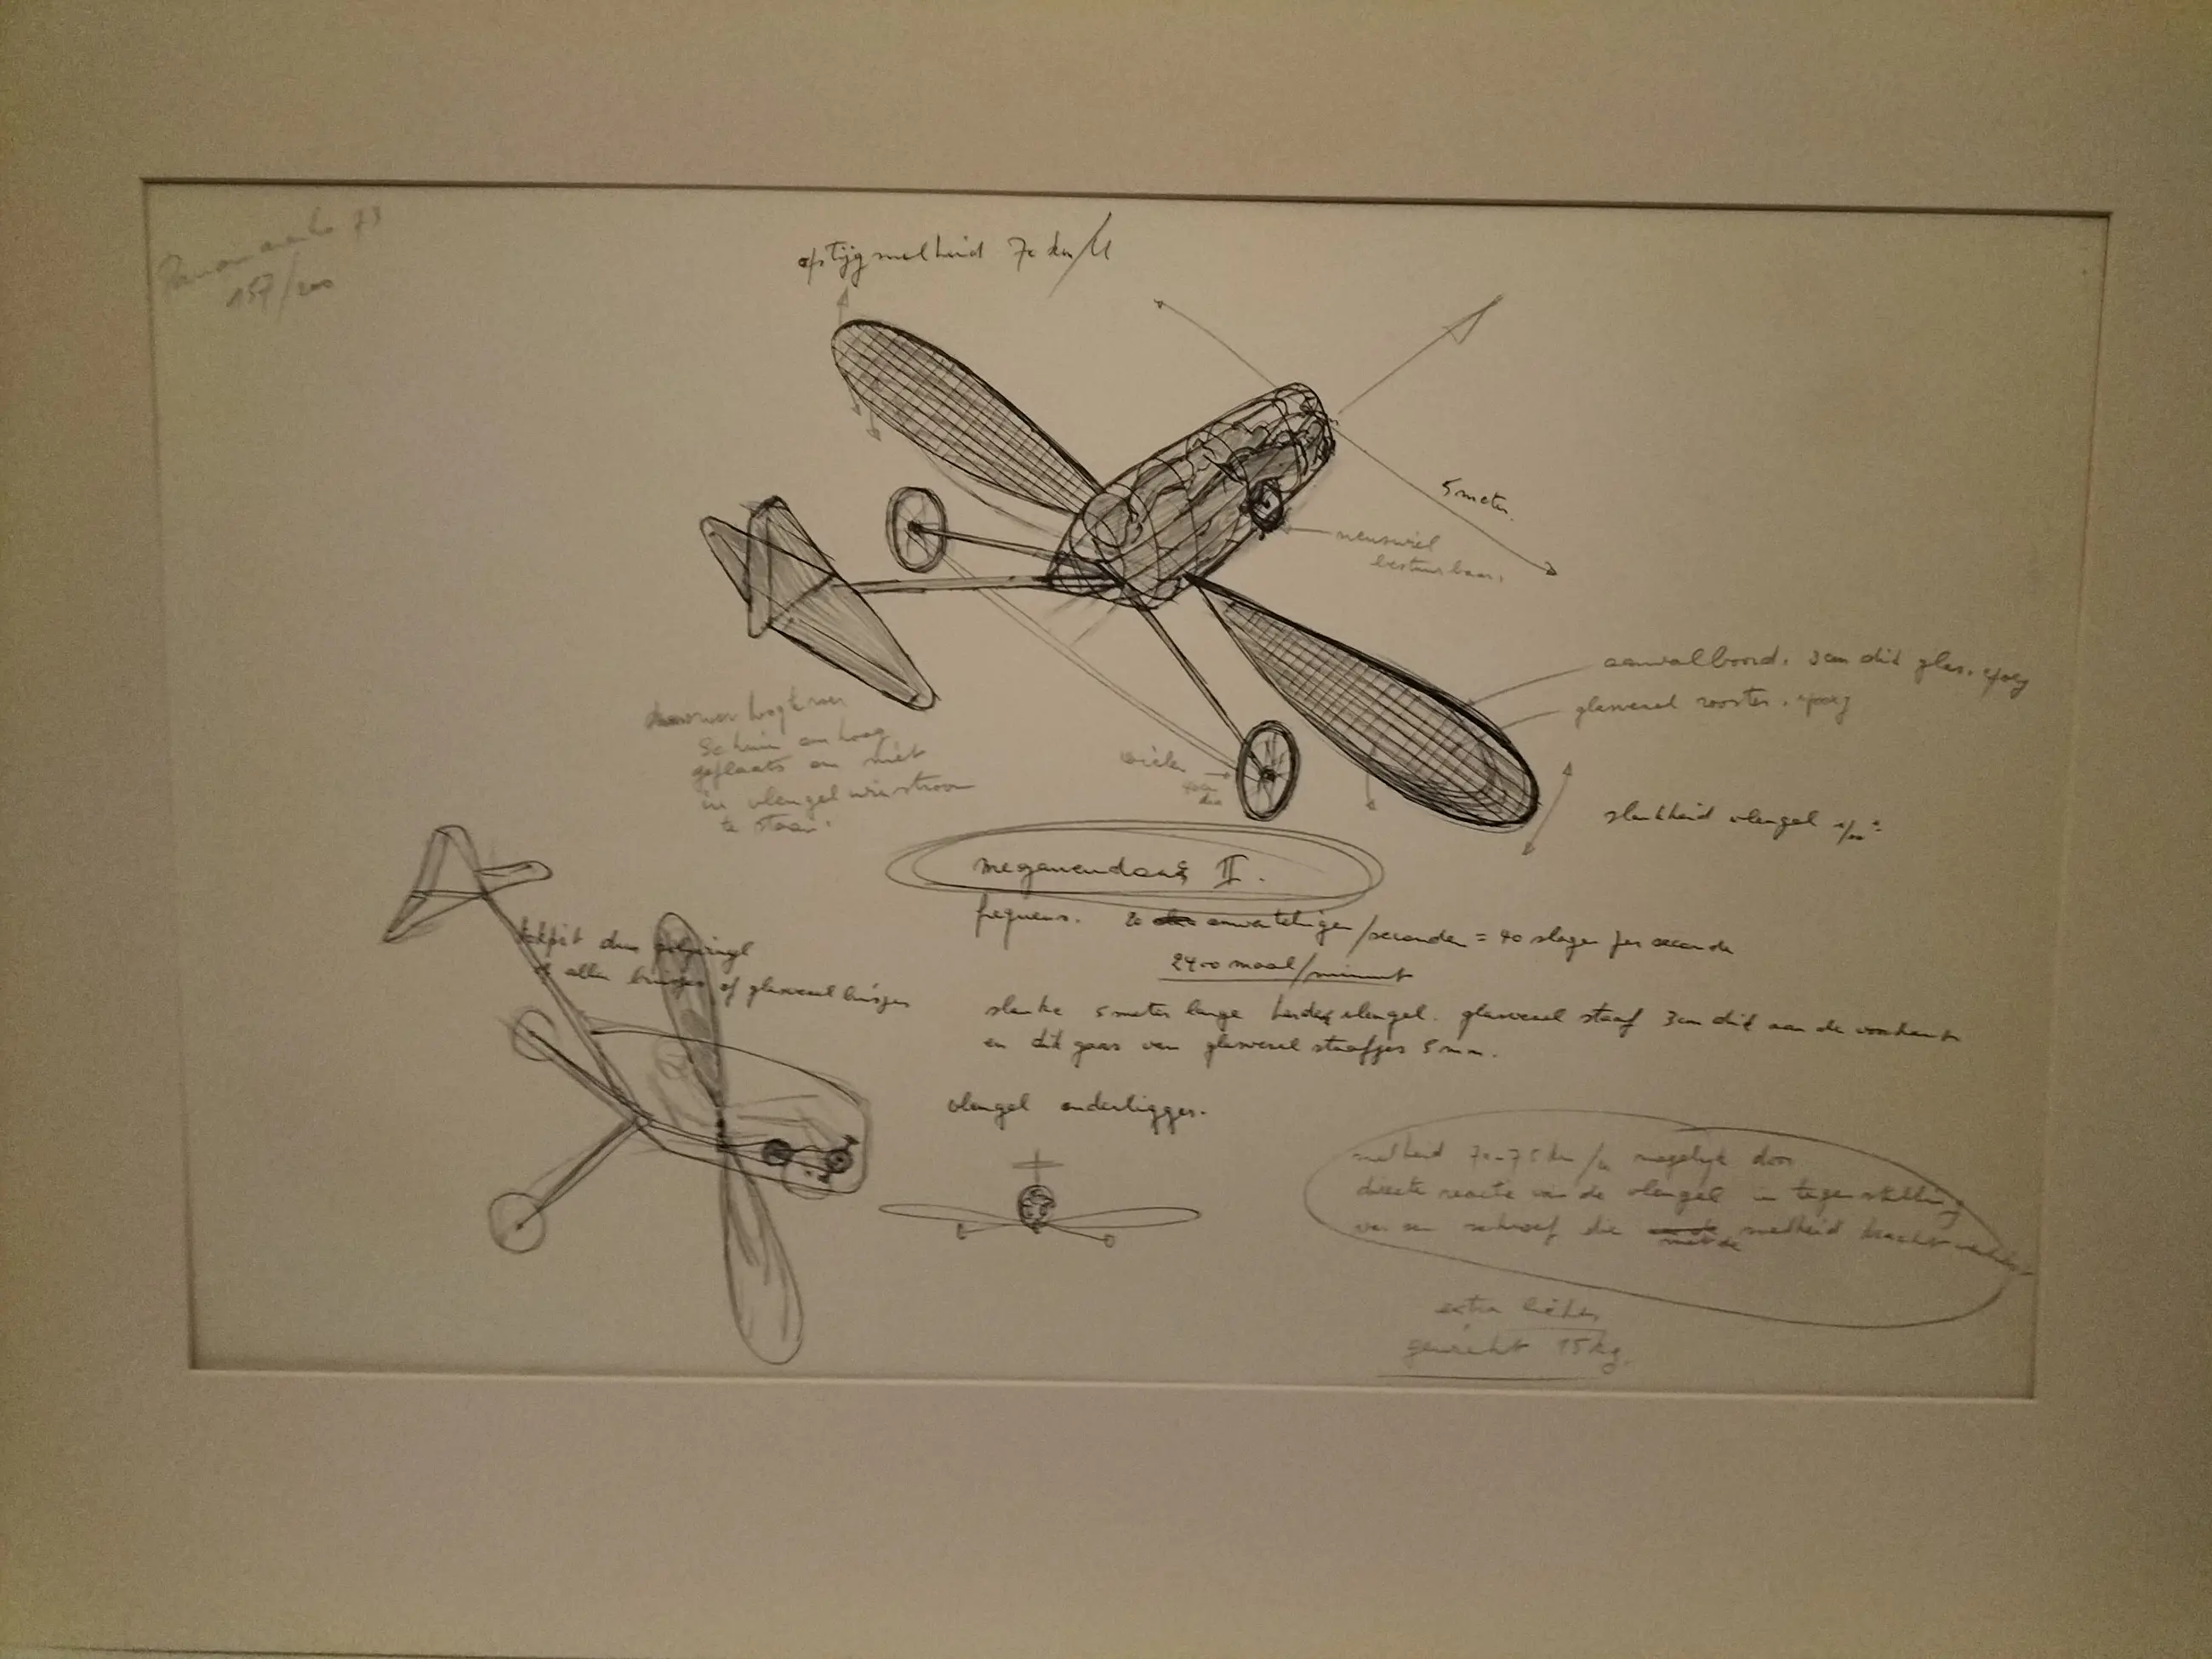 Panamarenko 73
157/200
opstijgsnelheid 70 km/U
5 meter.
neuswiel
bestuurbaar.
aanvalboord. 3 cm dik glas. epoxy
glasvezel rooster. epoxy
hoogteroer
Schuin omhoog
geplaats om niet
in vleugel
te staan.
wielen
40 cm
dia
slankheid vleugel
meganeudons II.
freqwens. 20 omwentelingen/seconden = 40 slagen per seconde
2400 maal/minuut
kokpit dun
of glasvezel buisjes
slanke 5 meter lange vleugel. glasvezel staaf 3 cm dik aan de voorkant
en dik gaas van glasvezel staafjes 5 mm.
vleugel onderligger.
snelheid 70-75 km/u mogelijk door
directe reactie van de vleugel in tegenstelling
van een schroef die met de snelheid kracht
extra lichte
gewicht 15 kg.